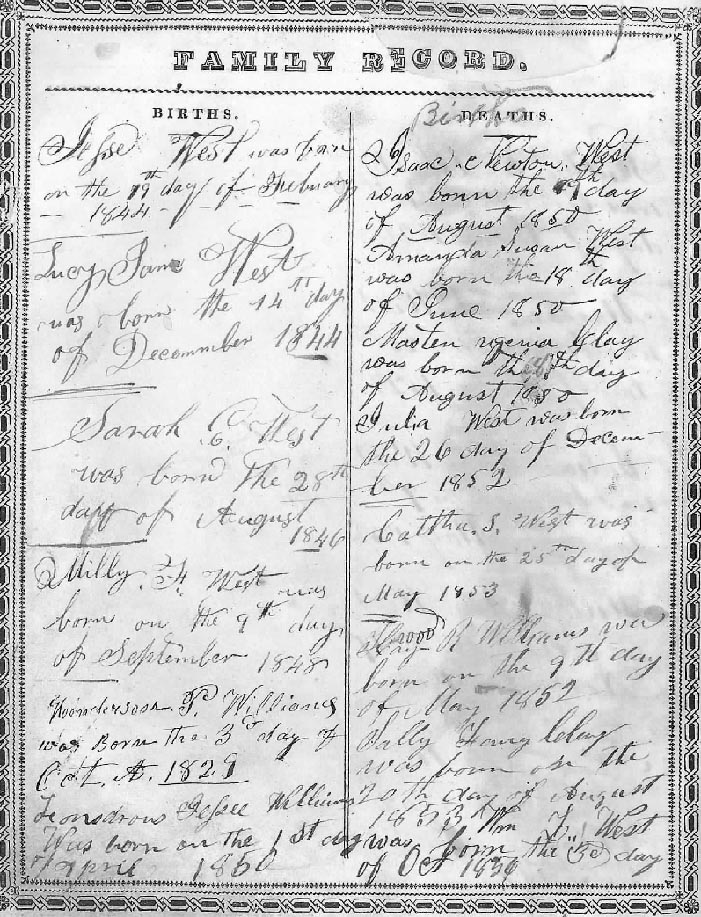 FAMILY RECORD.
BIRTHS.
Jesse West was born
on the 19th day of Februrary
1844
Lucy Jane West
was born the 14th day
of Decommber 1844
Sarah C. West
was born the 28th
day of August
1846
Milly F. West
was
born on the 9th day
of September 1848
P. Williams
was Born the 3d day of
Oct. A. 1829
Jessee Williams
Was born on the 1st day
of april 1850
Births
DEATHS.
Isaac Newton West
was born the day
of August 1850
Amanda Susan West
was born the 18th day
of June 1850
Masten Clay
was born the day
of August
Julia West was born
the 26 day of Decem
ber 1852
S. West was
born on the 25th day of
May 1853
R Williams was
born on the 9th day
of May 1852
Sally Clay
was born on the
20th day of August
1853 Wm West
was born the 3d day
of Oct